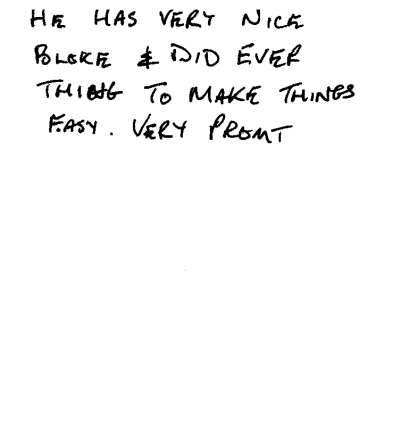 HE HAS VERY NICE
BLOKE & DID EVER
THING TO MAKE THINGS
EASY. VERY PROMT